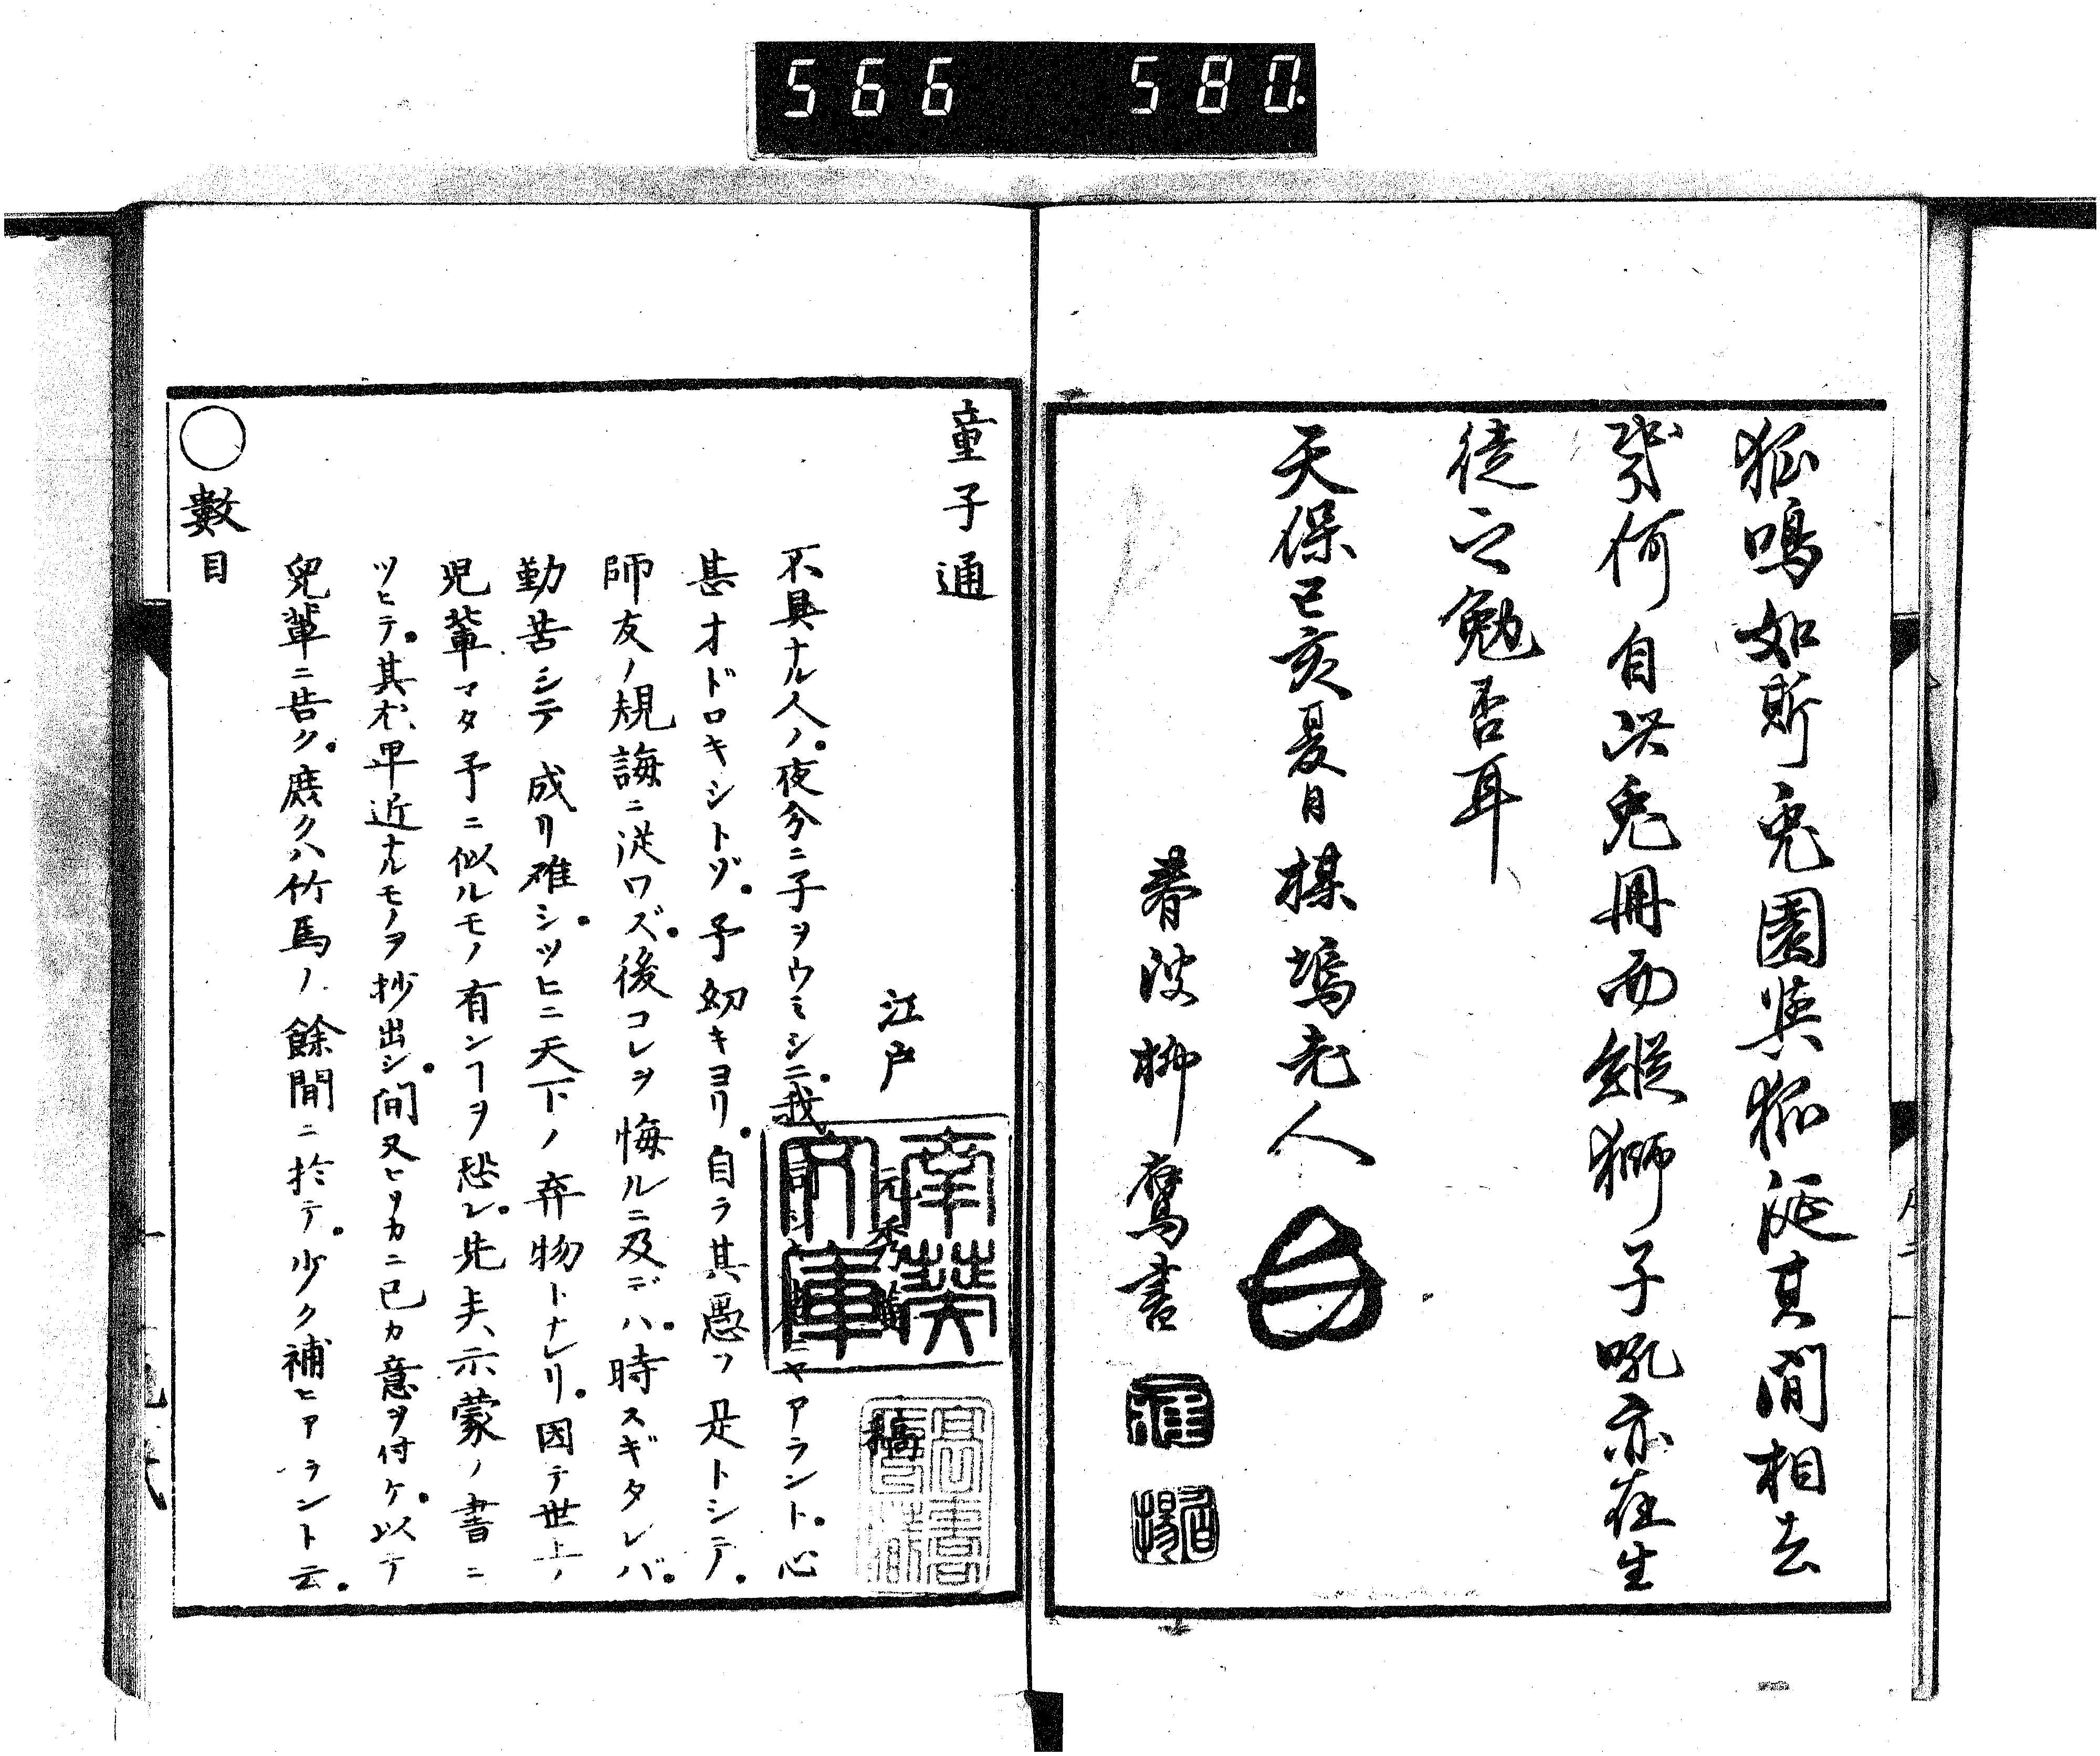 566 580.
狐鳴如斯兎園與狐涎其間相去
幾何自此兎冊而縦獅子吼亦在生
徒之勉否耳
天保己亥夏日楳塢老人
春波柳鷹書
童子通
江戸 元秀 稿
不具ナル人ノ。夜分ニ子ヲウミシニ。我 ニヤアラント。心
甚オドロキシトゾ。予幼キヨリ。自ラ其愚ヲ是トシテ。
師友ノ規誨ニ従ワズ。後コレヲ悔ルニ及デハ。時スギタレバ。
勤苦シテ成リ難シ。ツヒニ天下ノ弃物トナレリ。因テ世上ノ
児輩マタ予ニ似ルモノ有ンヿヲ恐レ。先夫示蒙ノ書ニ
ツヒテ。其尤、卑近ナルモノヲ抄出シ。間又ヒソカニ己カ意ヲ付ケ。以テ
兒輩ニ告ク。庶クハ竹馬ノ餘間ニ於テ。少ク補ヒアラント云。
○數目